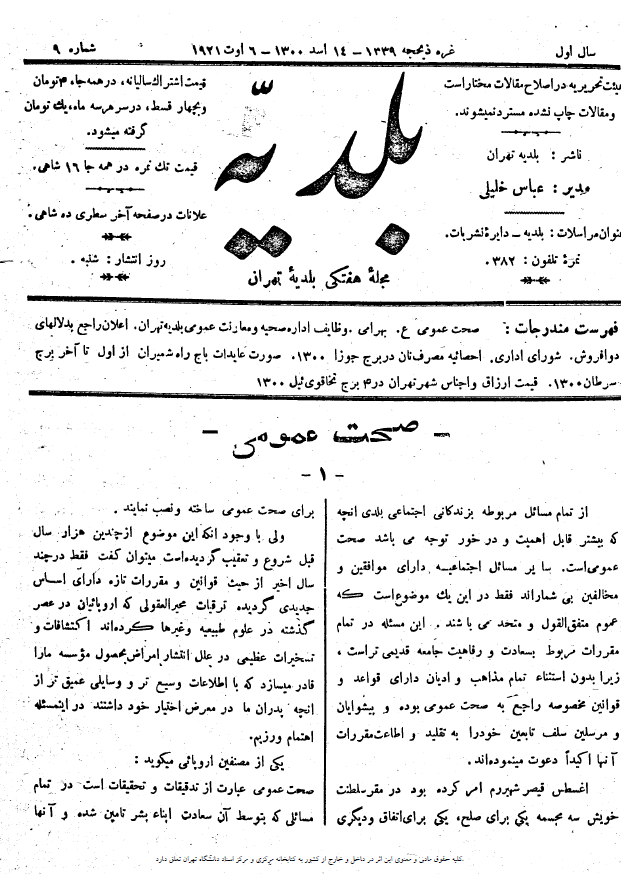 سال اول
غره ذیحجه ۱۳۳۹ - ۱۴ اسد ۱۳۰۰ - ۶ اوت ۱۹۲۱
شماره ۹
هیئت تحریریه در اصلاح مقالات مختار است
و مقالات چاپ نشده مسترد نمیشوند.
ناشر : بلدیه تهران
مدیر : عباس خلیلی
عنوان مراسلات : بلدیه - دایرهٔ نشریات.
نمرهٔ تلفون : ۳۸۲.
بلدیّه
مجلهٔ هفتگی بلدیهٔ تهران
قیمت اشتراک سالیانه، در همه جا، ۴ تومان
و بچهار قسط، در سر هر سه ماه، یک تومان
گرفته میشود.
قیمت تک نمره در همه جا ۱۶ شاهی.
علانات در صفحه آخر سطری ده شاهی.
روز انتشار : شنبه .
فهرست مندرجات : صحت عمومی ع. بهرامی . وظایف اداره صحیه و معاونت عمومی بلدیه تهران. اعلان راجع بدلالهای
دوافروش. شورای اداری. احصائیه مصرف نان در برج جوزا ۱۳۰۰. صورت عایدات باج راه شمیران از اول تا آخر برج
سرطان ۱۳۰۰. قیمت ارزاق و اجناس شهر تهران در ۴ برج تخاقوی ئیل ۱۳۰۰
- صحت عمومی -
- ۱ -
از تمام مسائل مربوطه بزندگانی اجتماعی بلدی انچه
که بیشتر قابل اهمیت و در خور توجه می باشد صحت
عمومی است. سایر مسائل اجتماعیه دارای موافقین و
مخالفین بی شمار اند فقط در این یک موضوع است که
عموم متفق القول و متحد می باشند . این مسئله در تمام
مقررات مربوط بسعادت و رفاهیت جامعه قدیمی تر است ،
زیرا بدون استثناء تمام مذاهب و ادیان دارای قواعد و
قوانین مخصوصه راجع به صحت عمومی بوده و پیشوایان
و مرسلین سلف تابعین خود را به تقلید و اطاعت مقررات
آنها اکیداً دعوت مینموده اند.
اغسطس قیصر شهیر رم امر کرده بود در مقر سلطنت
خویش سه مجسمه یکی برای صلح، یکی برای اتفاق و دیگری
برای صحت عمومی ساخته و نصب نمایند .
ولی با وجود انکه این موضوع از چندین هزار سال
قبل شروع و تعقیب گردیده است میتوان گفت فقط در چند
سال اخیر از حیث قوانین و مقررات تازه دارای اساس
جدیدی گردیده ترقیات محیرالعقولی که اروپائیان در عصر
گذشته در علوم طبیعیه و غیرها کرده اند اکتشافات و
تسخیرات عظیمی در علل انتشار امراض بمحصول مؤسسه مارا
قادر میسازد که با اطلاعات وسیع تر و وسایلی عمیق تر از
انچه پدران ما در معرض اختیار خود داشتند در اینمسئله
اهتمام ورزیم.
یکی از مصنفین اروپائی میگوید :
صحت عمومی عبارت از تدقیقات و تحقیقات است در تمام
مسائلی که بتوسط آن سعادت ابناء بشر تامین شده و آنها
کلیه حقوق مادی و معنوی این اثر در داخل و خارج از کشور به کتابخانه مرکزی و مرکز اسناد دانشگاه تهران تعلق دارد.